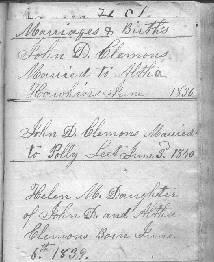 Marriages & Births
John D. Clemons
Married to Altha
Hawkins June 1836
John D. Clemons Married
to Polly Leet June 3d. 1840
Helen M. Daughter
of John D. and Altha
Clemons Born June
8th 1839.